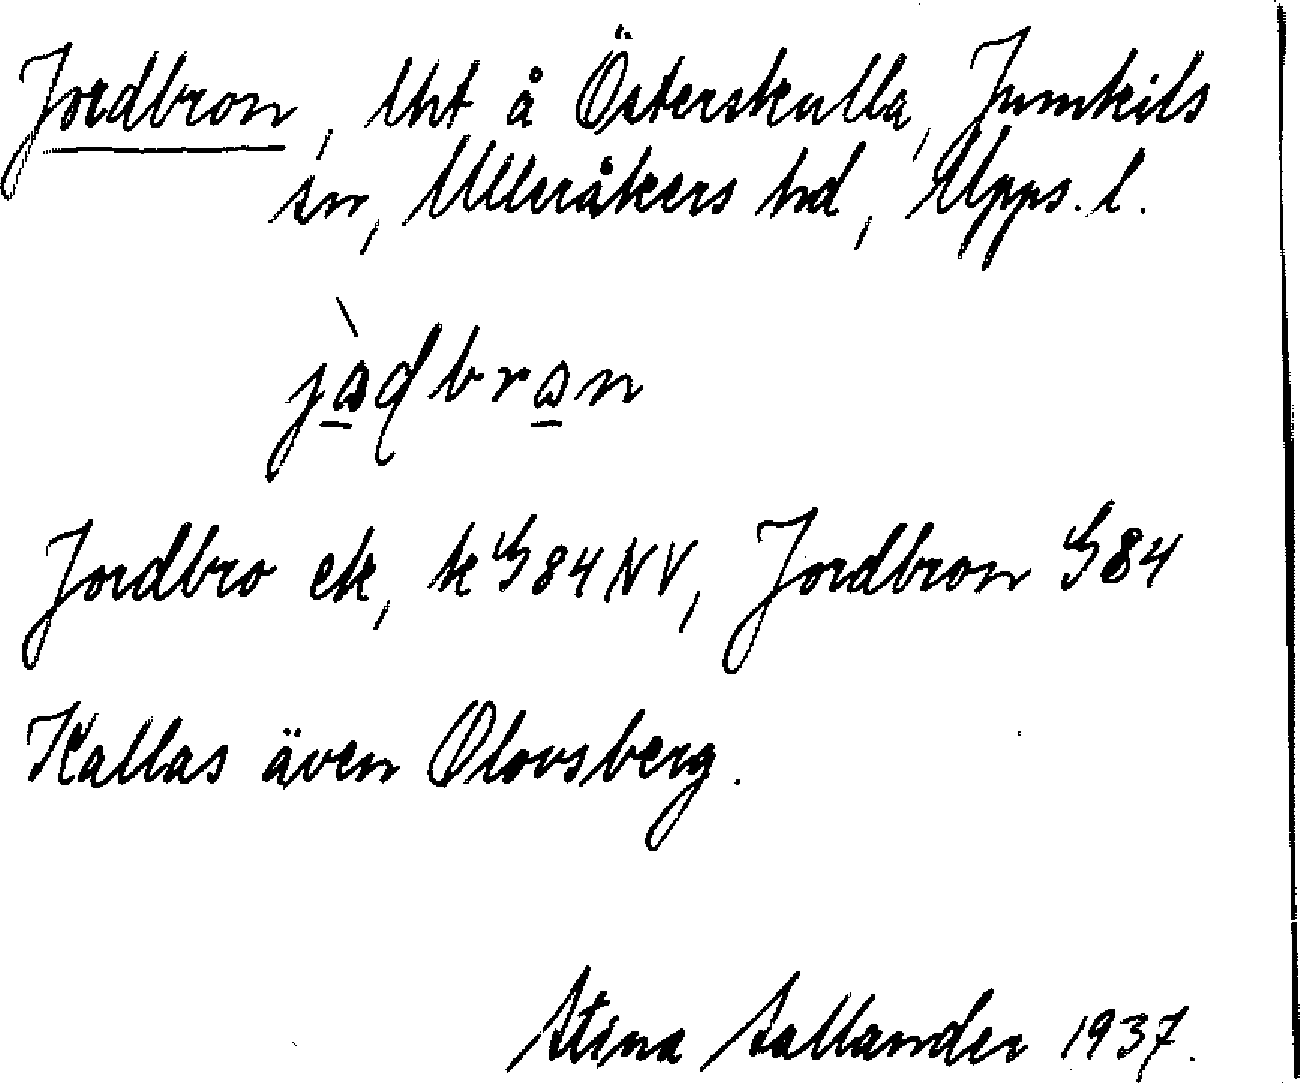 Jordbron, lht å Österskulla, Jumkils
sn, Ulleråkers hd, Upps. l.
Jordbro ek, k G 84 NV, Jordbron G 84
Kallas även Olovsberg.
Stina Sallander 1937.